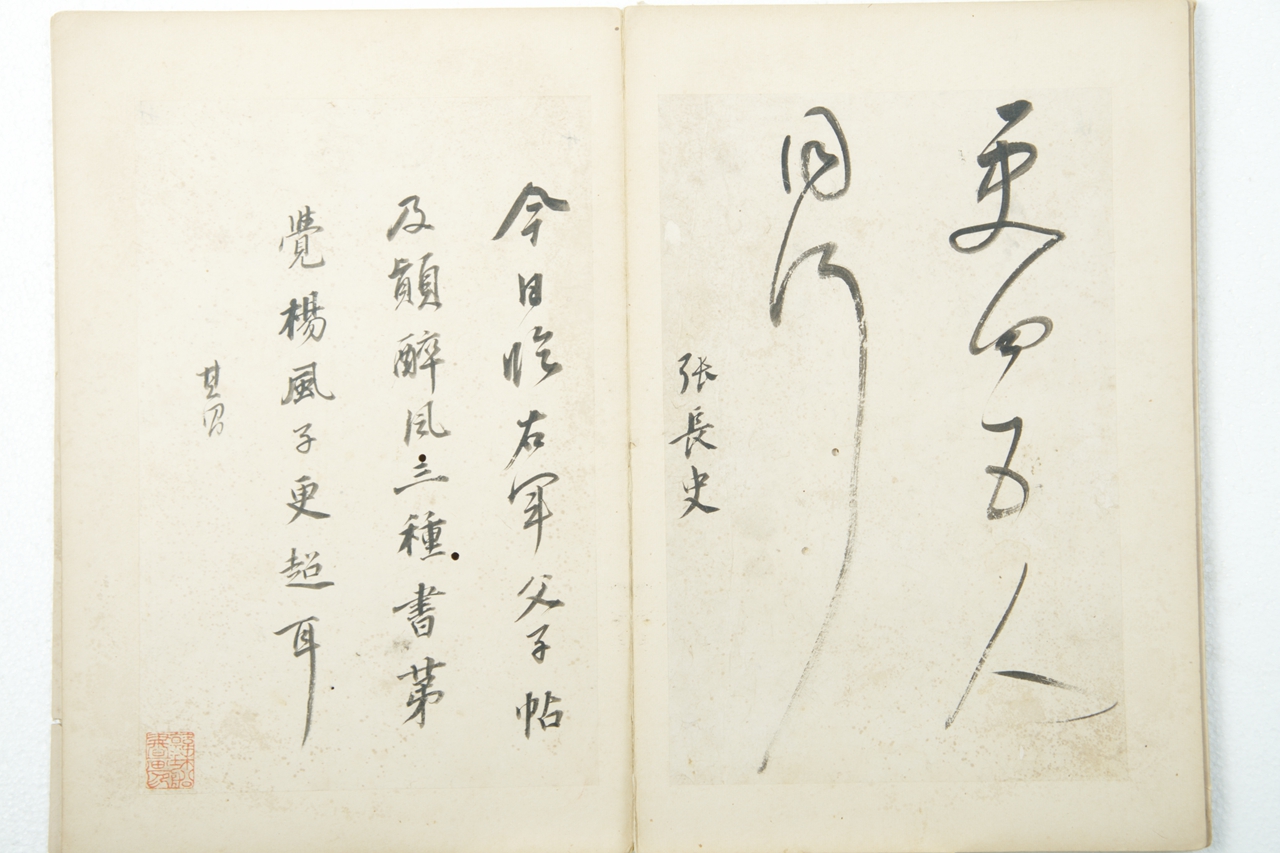 更四五人
同行
張長史
今日臨右軍父子帖
及顛醉風三種書第
覺楊風子更超耳
其昌